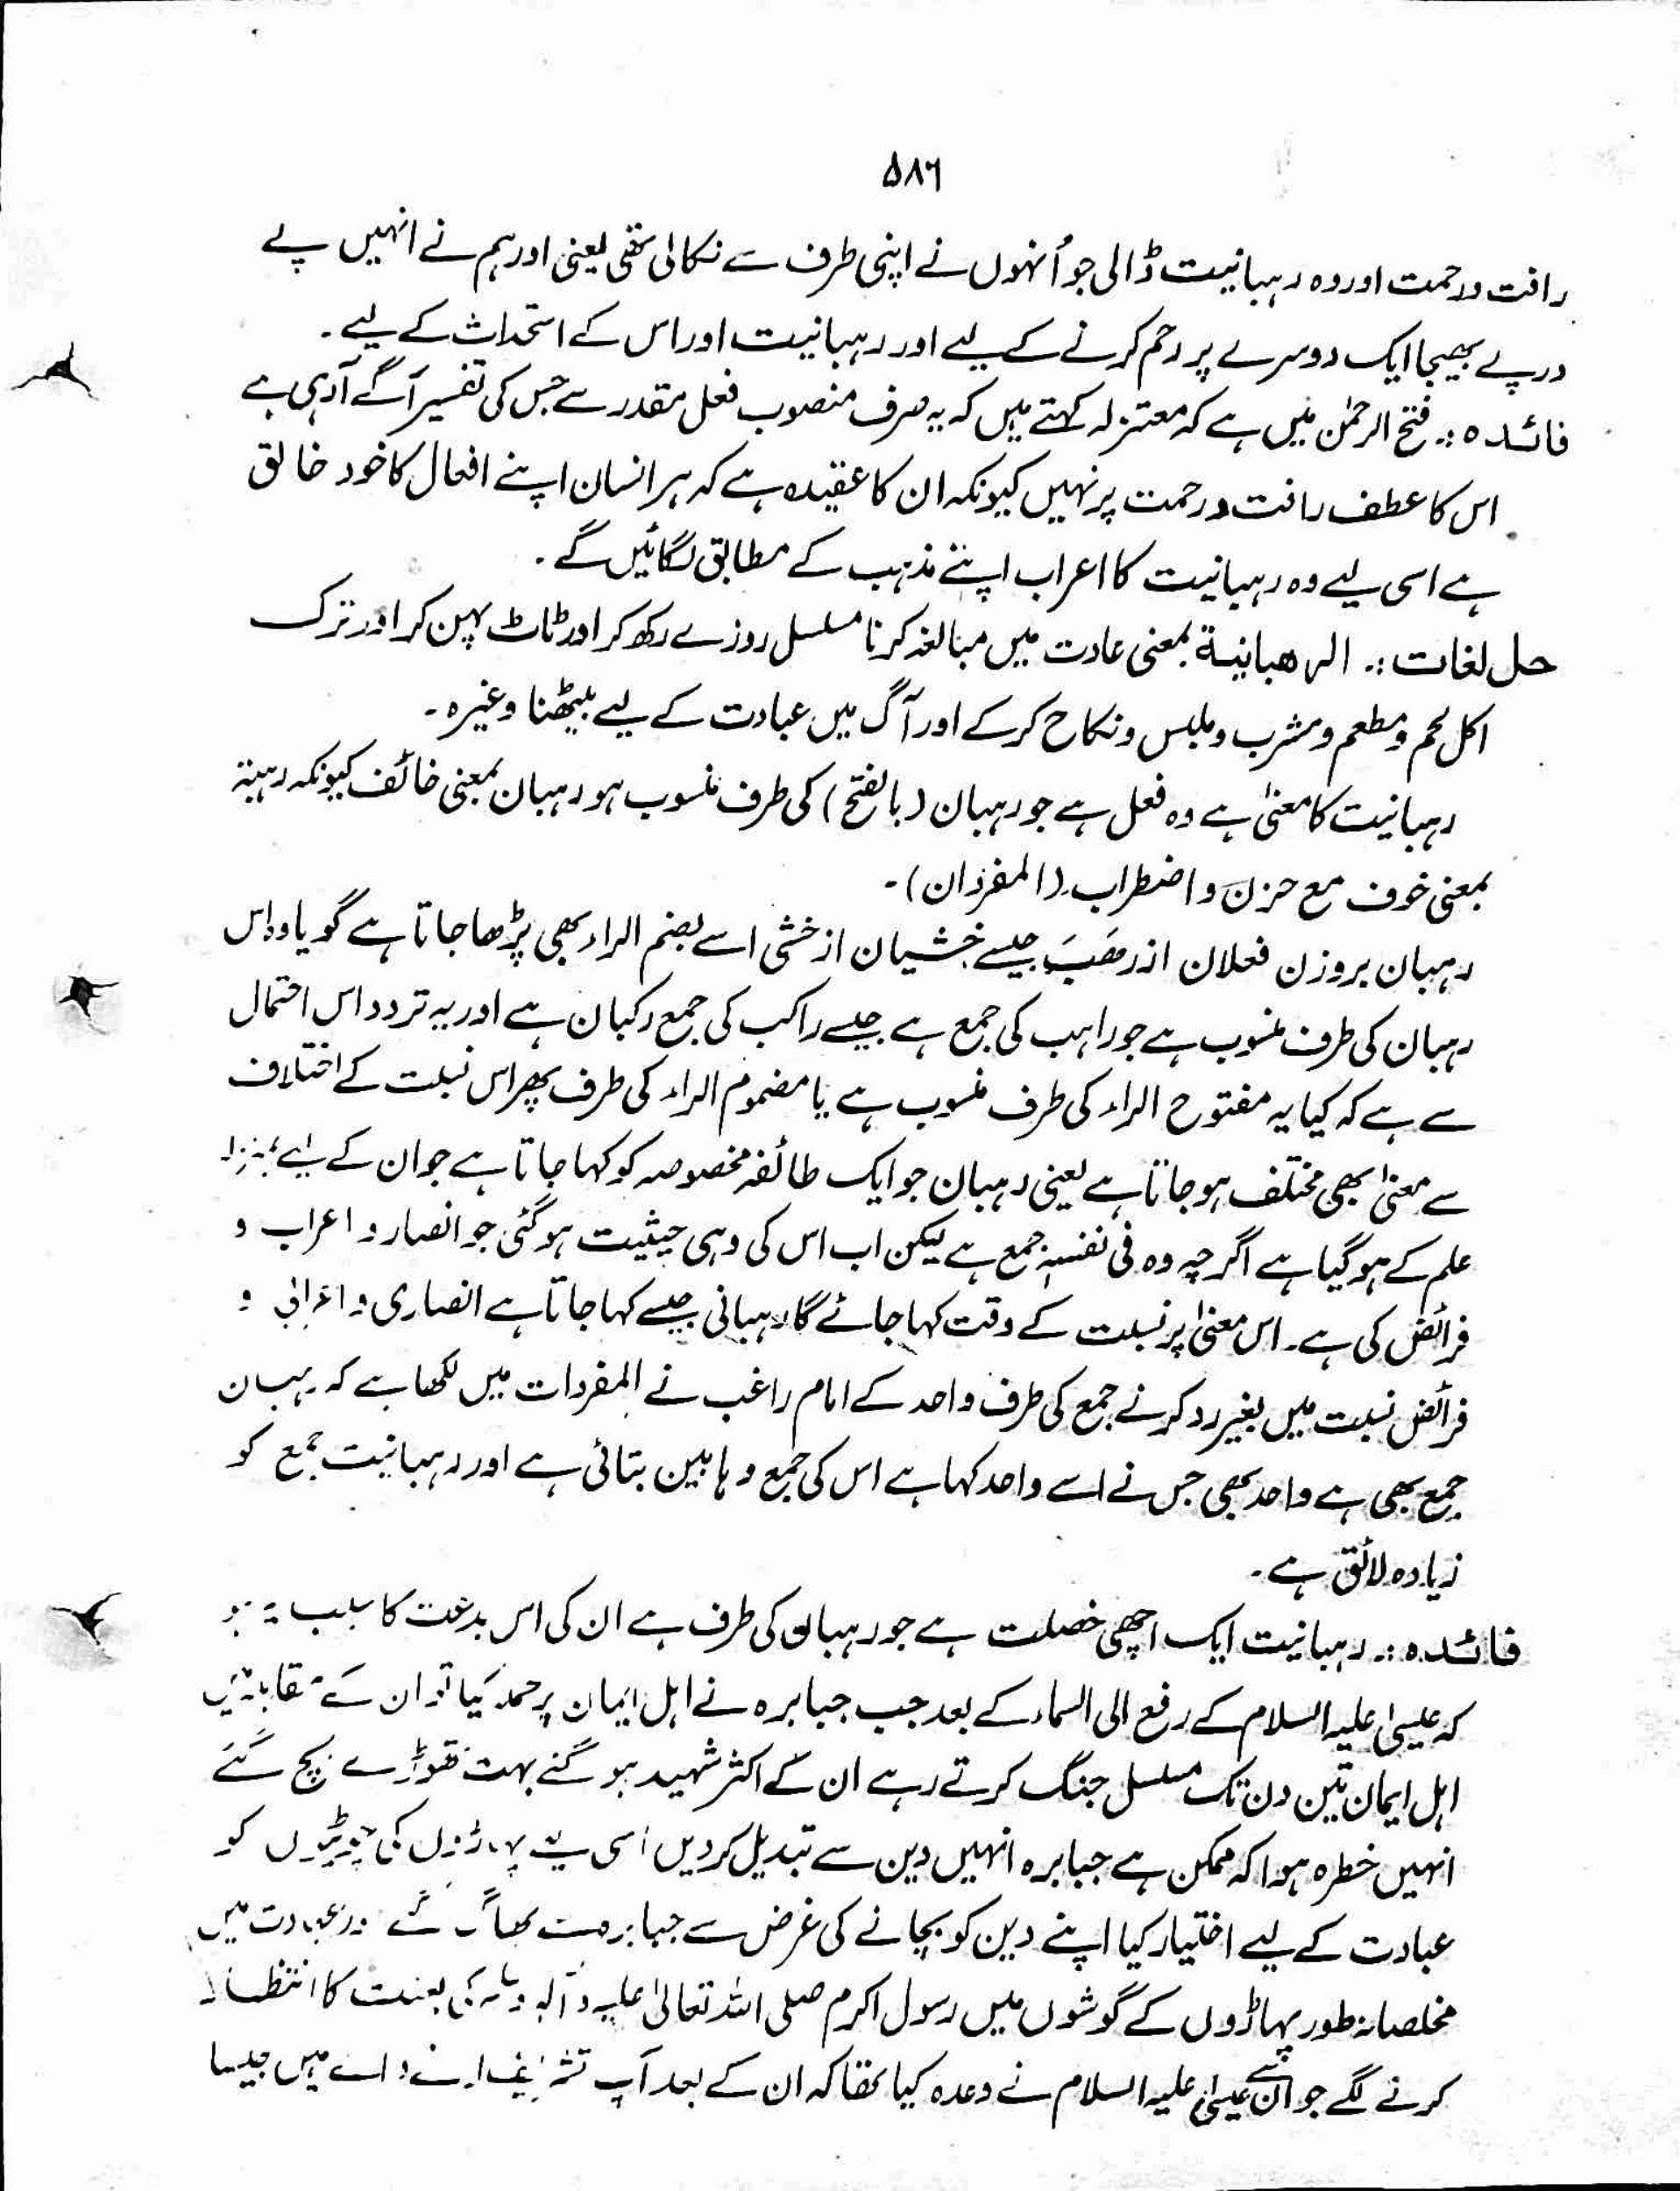 ۵۸۶
رافت ورحمت اور وہ رہبانیت ڈالی جو اُنہوں نے اپنی طرف سے نکالی تھی یعنی اور ہم نے انہیں پے
درپے بھیجا ایک دوسرے پر رحم کرنے کے لیے اور رہبانیت اور اس کے استحداث کے لیے ۔
فائدہ :. فتح الرحمٰن میں ہے کہ معتزلہ کہتے ہیں کہ یہ صرف منصوب فعل مقدر سے جس کی تفسیر آگے آرہی ہے
اس کا عطف رافت ورحمت پر نہیں کیونکہ ان کا عقیدہ ہے کہ ہر انسان اپنے افعال کا خود خالق
ہے اسی لیے وہ رہبانیت کا اعراب اپنے مذہب کے مطابق لگائیں گے ۔
حل لغات :. الرهبانية بمعنی عادت میں مبالغہ کرنا مسلسل روزے رکھ کر اور ٹاٹ پہن کر اور ترک
اکل لحم ومطعم ومشرب وملبس ونکاح کر کے اور آگ میں عبادت کے لیے بیٹھنا وغیرہ ۔
رہبانیت کا معنیٰ ہے وہ فعل ہے جو رہبان (بالفتح) کی طرف منسوب ہو رہبان بمعنی خائف کیونکہ رہبۃ
بمعنی خوف مع حزن واضطراب (المفردان) ۔
رہبان بروزن فعلان از رھب جیسے خشیان از خشی اسے بضم الراء بھی پڑھا جاتا ہے گویا وہ اس
رہبان کی طرف منسوب ہے جو راہب کی جمع ہے جیسے راکب کی جمع رکبان ہے اور یہ تردد اس احتمال
سے ہے کہ کیا یہ مفتوح الراء کی طرف منسوب ہے یا مضموم الراء کی طرف پھر اس نسبت کے اختلاف
سے معنیٰ بھی مختلف ہو جاتا ہے یعنی رہبان جو ایک طائفہ مخصوصہ کو کہا جاتا ہے جو ان کے لیے بمنزلہ
علم کے ہو گیا ہے اگرچہ وہ فی نفسہٖ جمع ہے لیکن اب اس کی وہی حیثیت ہو گئی جو انصار و اعراب و
فرائض کی ہے۔ اس معنیٰ پر نسبت کے وقت کہا جائے گا رہبانی جیسے کہا جاتا ہے انصاری و اعرابی و
فرائض نسبت میں بغیر رد کرنے جمع کی طرف واحد کے امام راغب نے المفردات میں لکھا ہے کہ رہبان
جمع بھی ہے واحد بھی جس نے اسے واحد کہا ہے اس کی جمع وہابین بتائی ہے اور رہبانیت جمع کو
زیادہ لائق ہے ۔
فائدہ :. رہبانیت ایک اچھی خصلت ہے جو رہبان کی طرف ہے ان کی اس بدعت کا سبب یہ ہو
کہ عیسیٰ علیہ السلام کے رفع الی السماء کے بعد جب جبابرہ نے اہل ایمان پر حملہ کیا تو ان کے مقابلہ میں
اہل ایمان تین دن تک مسلسل جنگ کرتے رہے ان کے اکثر شہید ہو گئے بہت تھوڑے بچ گئے
انہیں خطرہ ہوا کہ ممکن ہے جبابرہ انہیں دین سے تبدیل کر دیں اسی لیے پہاڑوں کی چوٹیوں کو
عبادت کے لیے اختیار کیا اپنے دین کو بچانے کی غرض سے جبابرہ سے بھاگ گئے اور عبادت میں
مخلصانہ طور پہاڑوں کے گوشوں میں رسول اکرم صلی اللہ تعالیٰ علیہ وآلہ وسلم کی بعثت کا انتظار
کرنے لگے جو ان سے عیسیٰ علیہ السلام نے وعدہ کیا تھا کہ ان کے بعد آپ تشریف لانے والے ہیں جیسا